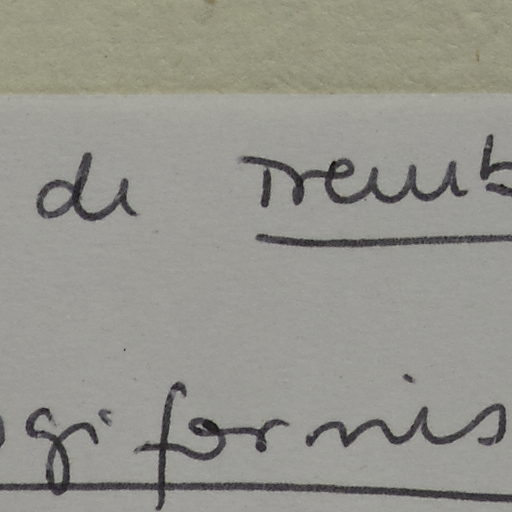 di Tremb
gifornis